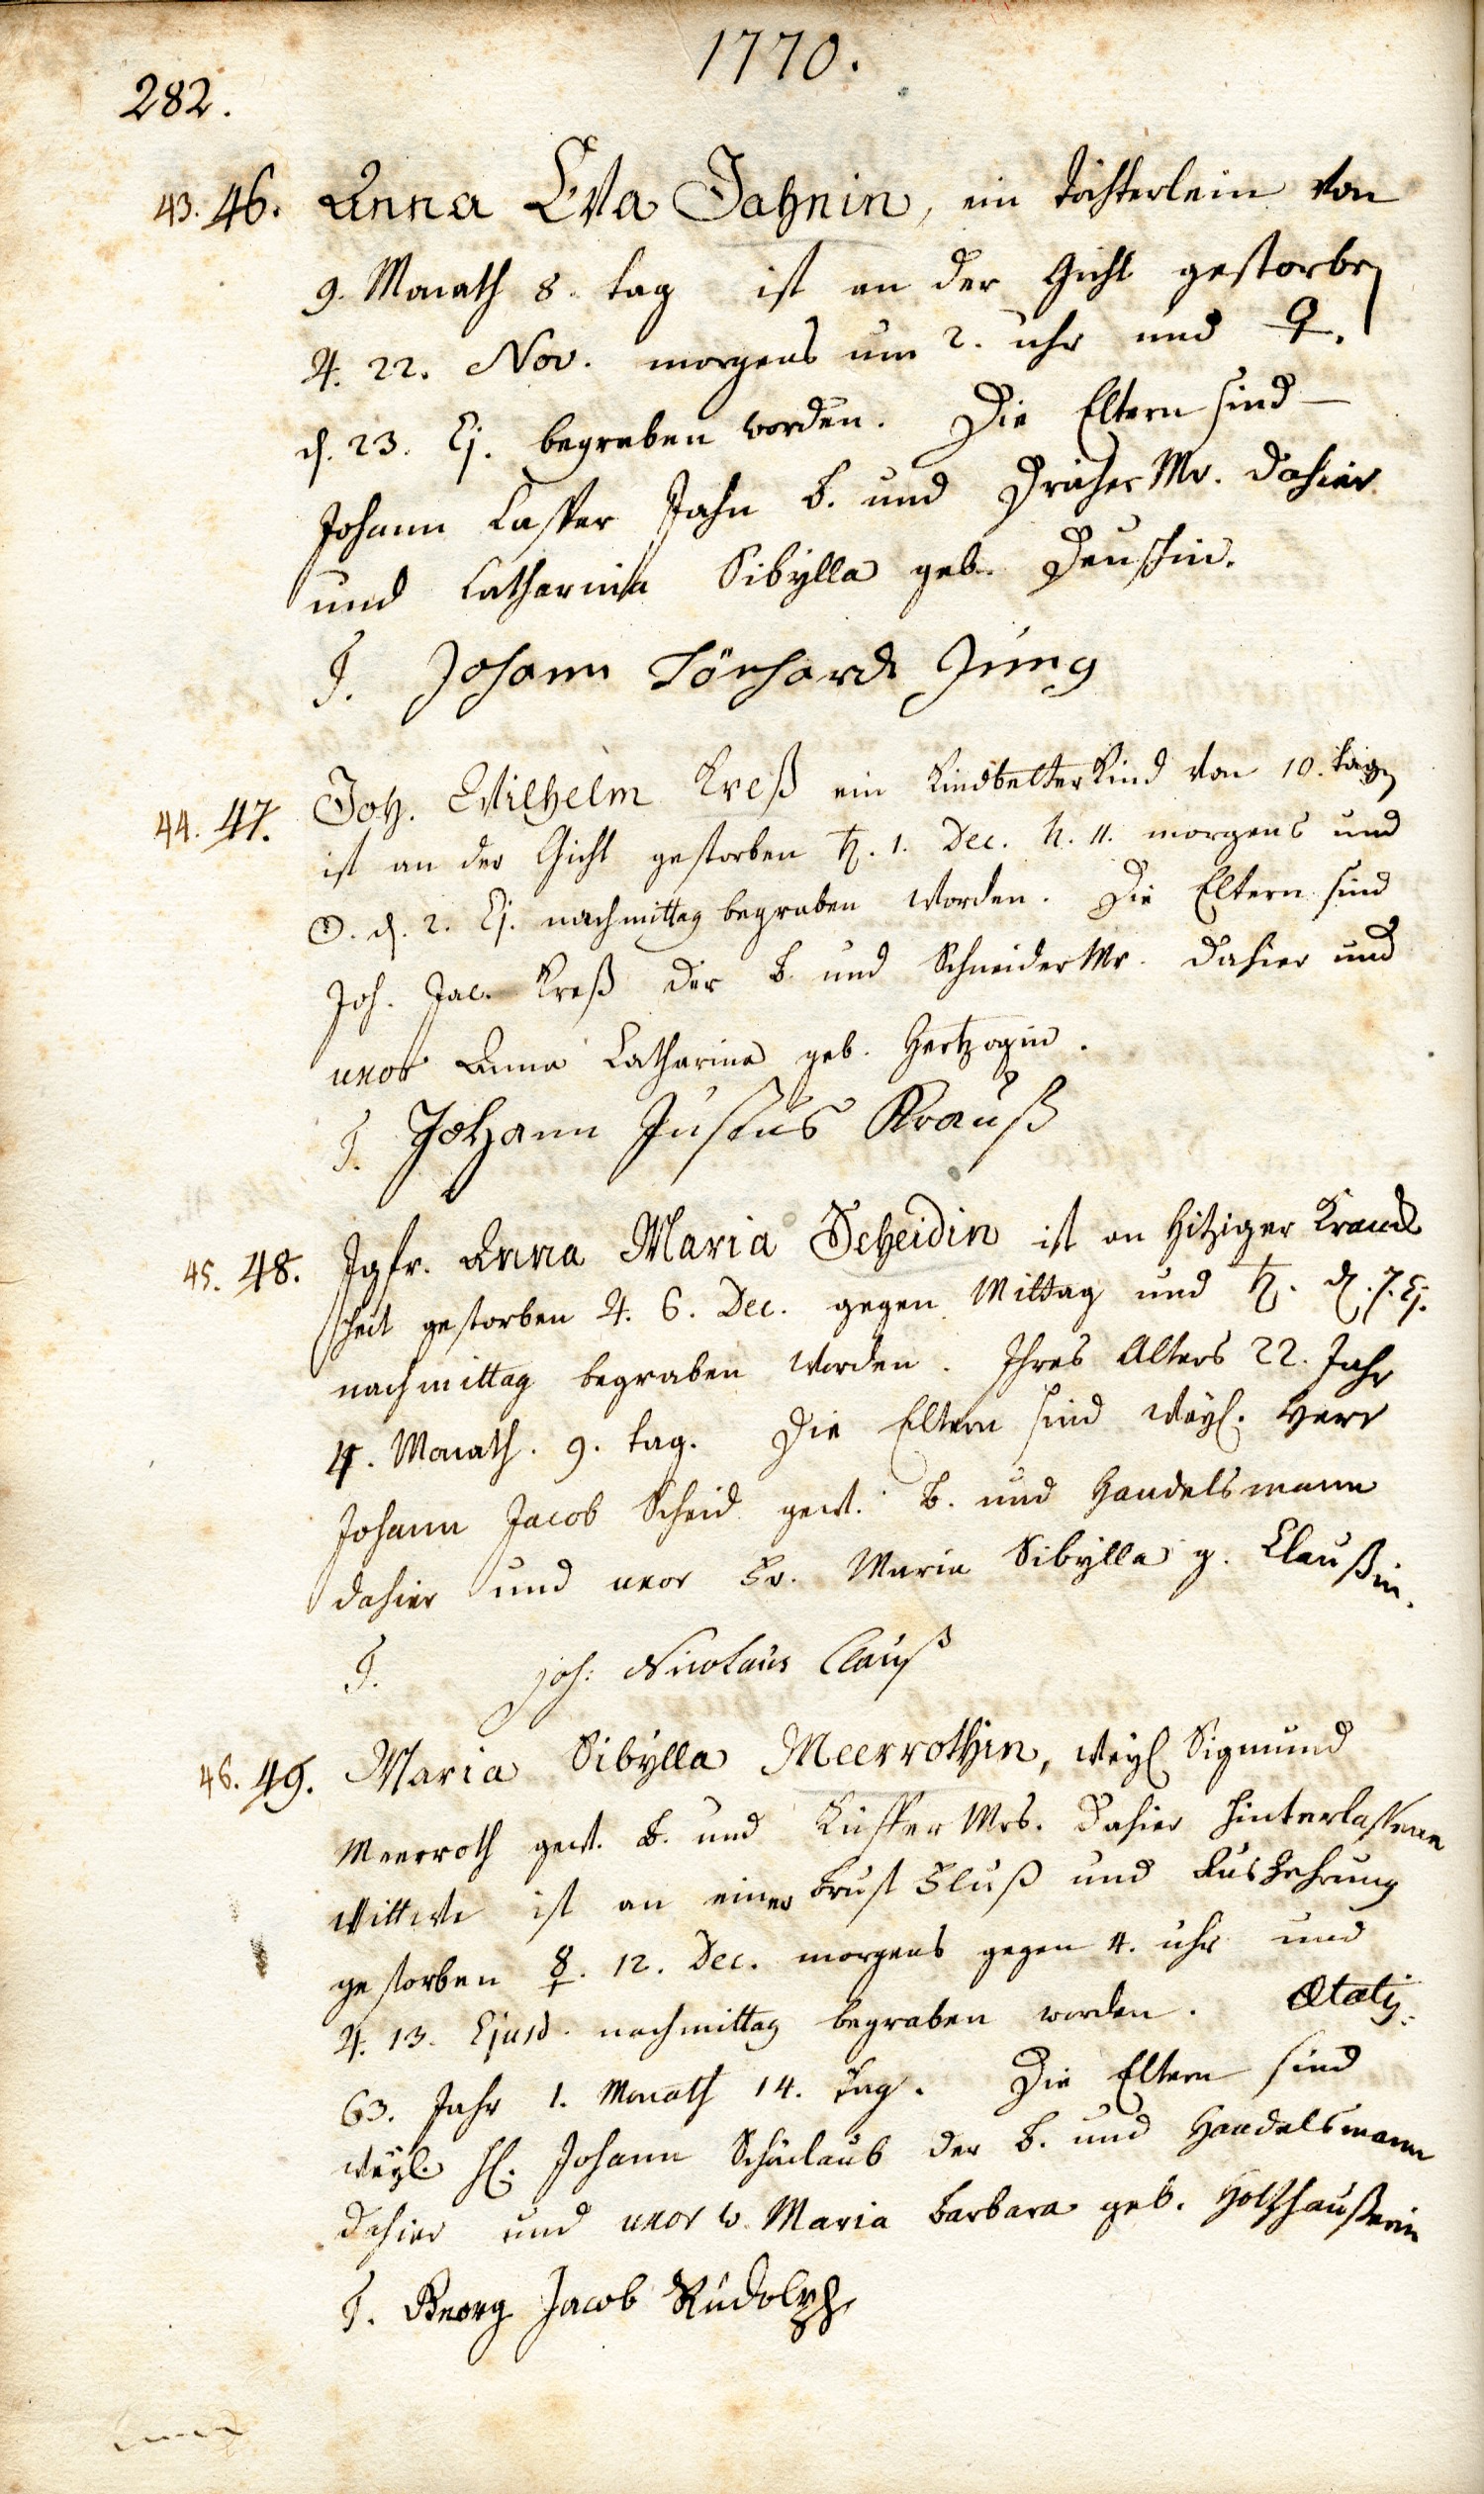 1770.
282.
43. 46. Anna Eva Jahnin, ein Töchterlein von
9. Monath 8. tag ist an der Gicht gestorben
♃. 22. Nov. morgens um 2. uhr und ♀.
d. 23. Ej. begraben worden. Die Eltern sind
Johann Casper Jahn B. und Dräher Mr. dahier
und Catharina Sibÿlla geb.
T. Johann Jung
44. 47. Joh. Wilhelm Kreß ein Kindbetter Kind von 10. tagen
ist an der Gicht gestorben ♄. 1. Dec. h. 11. morgens und
☉. d. 2. Ej. nachmittag begraben worden. Die Eltern sind
Joh. Jac. Kreß der B. und Schneider Mr. dahier und
uxor Anna Catharina geb. Hertzogin.
T. Johann Justus Krauß
45. 48. Jgfr. Anna Maria Scheidin ist an hitziger Kranck
heit gestorben ♃. 6. Dec. gegen Mittag und ♄. d. 7. Ej.
nachmittag begraben worden. Ihres Alters 22. Jahr
4. Monath. 9. tag. Die Eltern sind weÿl. Herr
Johann Jacob Scheid gew. B. und Handelsmann
dahier und uxor Fr. Maria Sibÿlla g. Claußin.
T. Joh: Nicolaus Clauß
46. 49. Maria Sibÿlla Meerrothin, weÿl Sigmund
Meerroth gew. B. und Küffer Mrs. dahier hinterlassene
Wittwe ist an einer Brust Fluß und Auszehrung
gestorben ☿. 12. Dec. morgens gegen 4. uhr und
♃. 13. Ejusd. nachmittag begraben worden. Ætatis.
63. Jahr 1. Monath 14. Tag. Die Eltern sind
weÿl. H. Johann der B. und Handelsmann
dahier und uxor w. Maria Barbara geb. Holtzhaußerin
T. Georg Jacob Rudolph